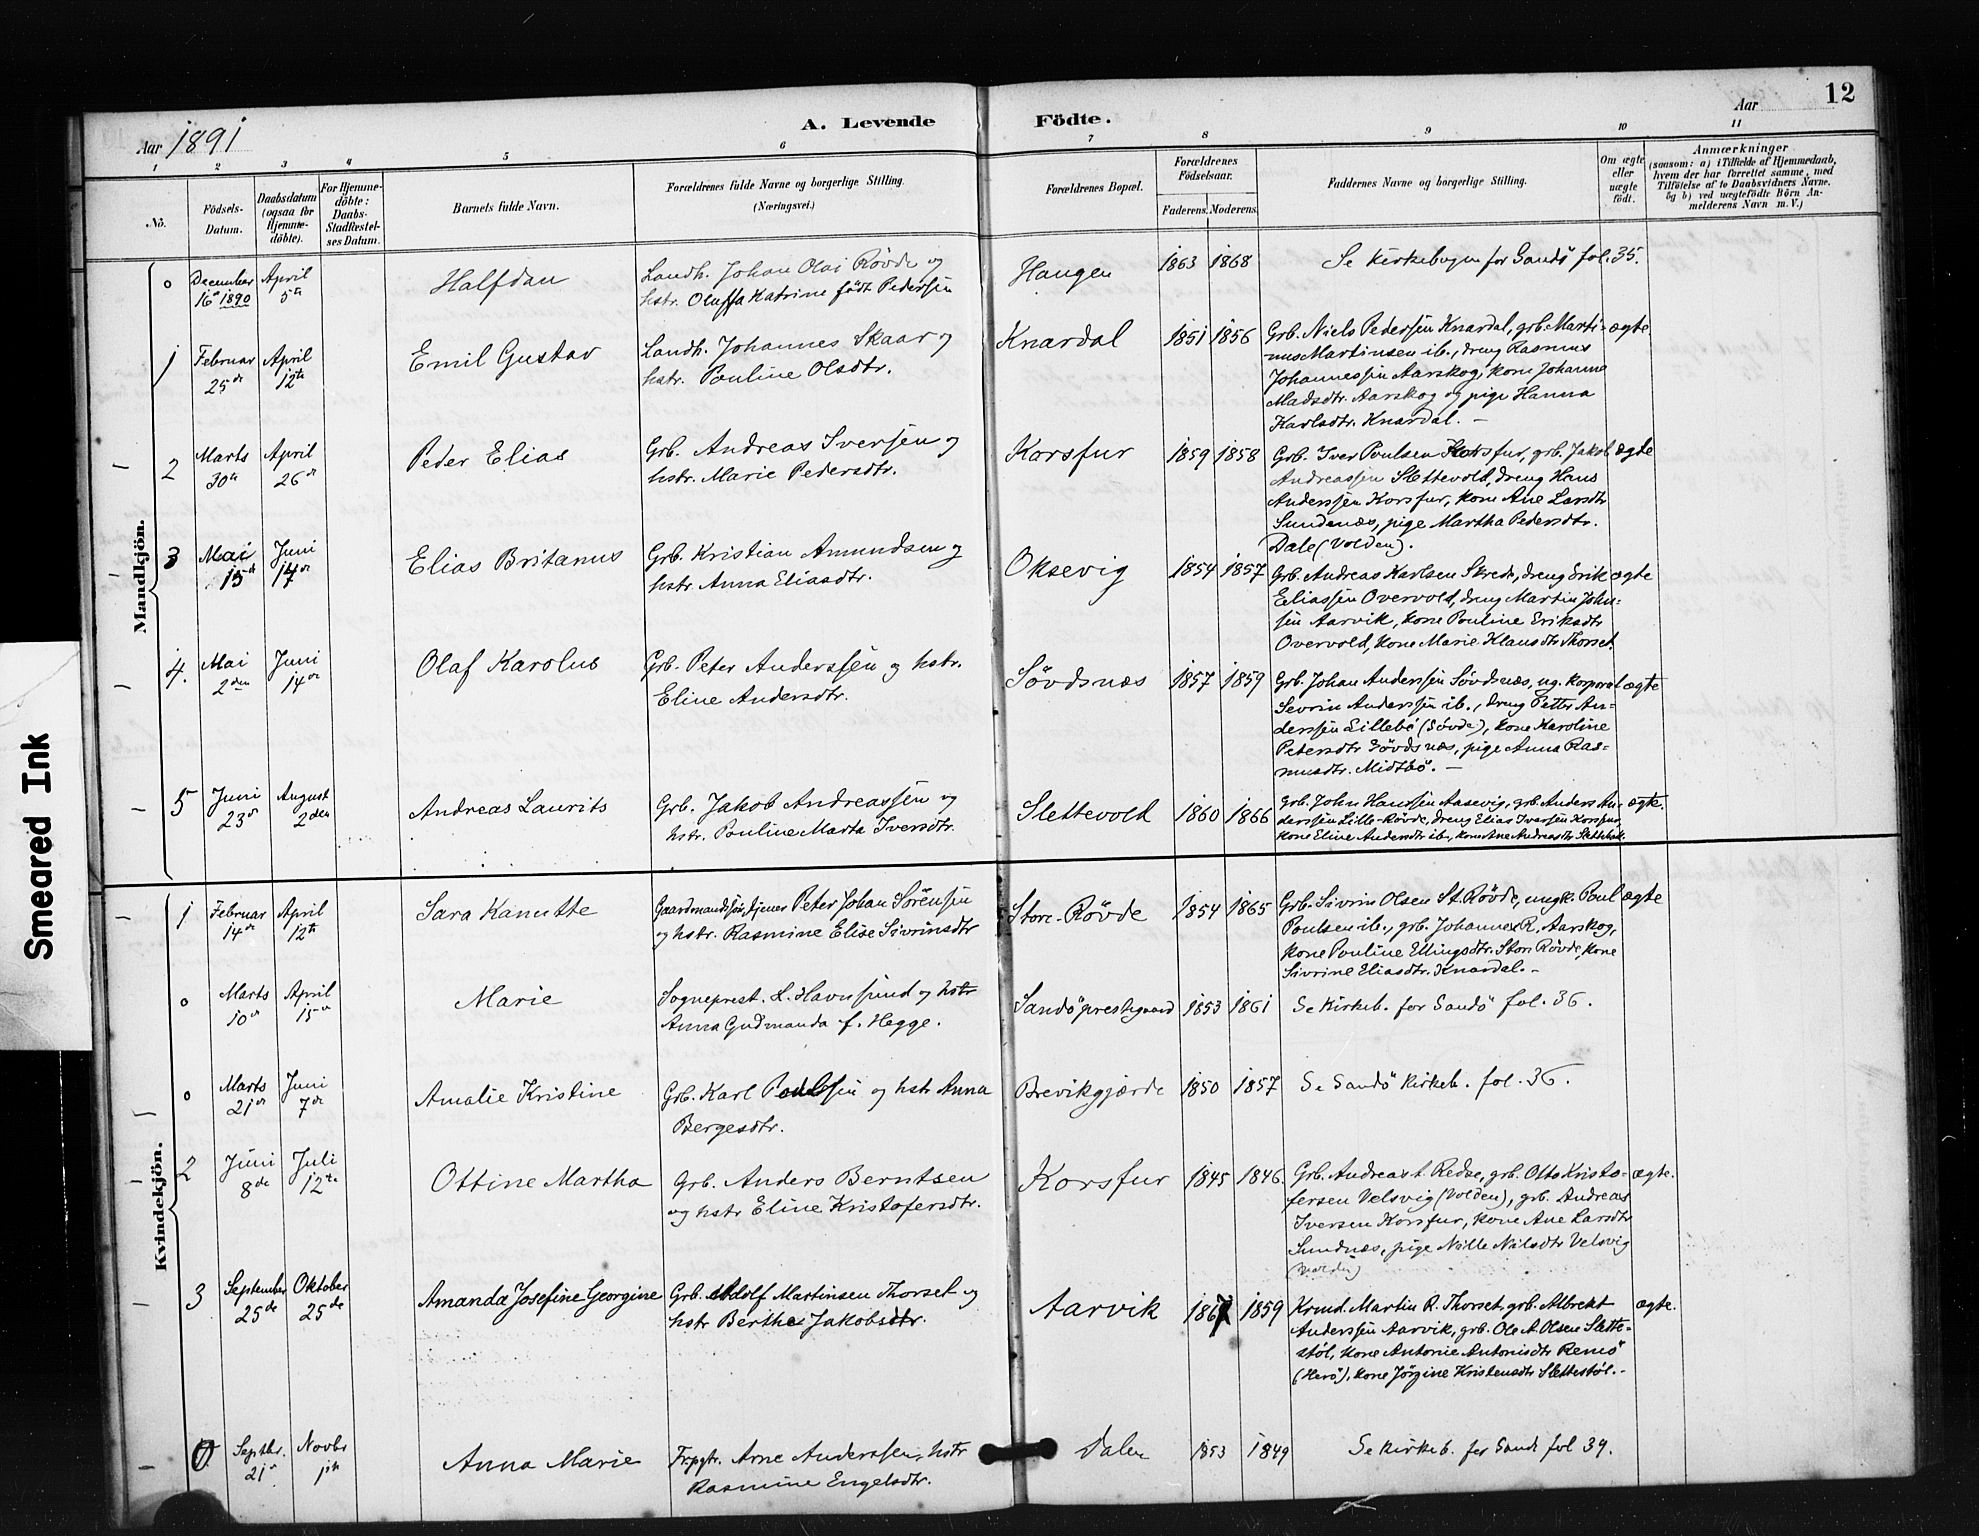 Smeared Ink
Aar 1891
A. Levende Födte.
Aar
12
1 2 3 4 5 6 7 8 9 10 11
No.
Födsels-
Datum.
Daabsdatum
(ogsaa for
Hjemme-
döbte).
For Hjemme-
döbte:
Daabs-
Stadfæstel-
ses Datum.
Barnets fulde Navn.
Forældrenes fulde Navne og borgerlige Stilling.
(Næringsvei.)
Forældrenes Bopæl.
Forældrenes
Födselsaar.
Faderens. Moderens.
Faddernes Navne og borgerlige Stilling.
Om ægte
eller
uægte
født.
Anmærkninger
(saasom: a) i Tilfælde af Hjemmedaab,
hvem der har forrettet samme, med
Tilföielse af to Daabsvidners Navne,
og b) ved uægtefödte Börn An-
melderens Navn m. V.)
Mandkjön.
0 December April Halfdan Landh. Johan Olai Røvde og Haugen 1863 1868 Se Kirkebogen for Sandö fol. 35.
16de 1890 5te hstr. Oluffa Katrine født Pedersen
1 Februar April Emil Gustav Landh. Johannes Skaar og Knardal 1851 1856 Grb. Niels Pedersen Knardal, grb. Marti- ægte
25de 12te hstr. Pauline Olsdtr. nus Martinsen ib., dreng Rasmus
Johannessen Aarskog, kone Johanne
Madsdtr. Aarskog og pige Hanna
Karlsdtr. Knardal. —
2 Marts April Peder Elias Grb. Andreas Iversen og Korsfur 1859 1858 Grb. Iver Poulsen Korsfur, grb. Jakob ægte
30te 26de hstr. Marie Pedersdtr. Andreassen Slettevold, dreng Hans
Anderssen Korsfur, kone Ane Larsdtr
Sundnæs, pige Martha Pedersdtr.
Dale (Volden).
3 Mai Juni Elias Britanus Grb. Kristian Amundsen og Oksevig 1854 1857 Grb. Andreas Karlsen Skrede, dreng Erik ægte
15de 14de hstr Anna Eliasdtr. Eliassen Overvold, dreng Martin John-
sen Aarvik, kone Pouline Eriksdtr
Overvold, kone Marie Klausdtr Thorset.
4. Mai Juni Olaf Karolus Grb. Peter Anderssen og hstr. Søvdsnæs 1857 1859 Grb. Johan Anderssen Søvdsnæs, ug. korporal ægte
2den 14de Eline Andersdtr. Sevrin Anderssen ib., dreng Petter An-
derssen Lillebö (Søvde), kone Karoline
Petersdtr Søvdsnæs, pige Anna Ras-
musdtr. Midtbö. —
5 Juni August Andreas Laurits Grb. Jakob Andreassen og Slettevold 1860 1866 grb. John Hanssen Aasevig, grb. Anders An- ægte.
23de 2den hstr. Pauline Marta Iversdtr. derssen Lille-Røvde, dreng Elias Iversen Korsfur,
kone Eline Andersdtr ib., kone Ane Andreasdtr Slettevold.
Kvindekjön.
1 Februar April Sara Kanutte Gaardmandssön, tjener Peter Johan Sörensen Store-Rövde 1854 1865 Grb. Sivrin Olsen St. Rövde, ungk. Poul ægte
14de 12te og hstr. Rasmine Elise Sivrinsdtr Poulsen ib., grb. Johannes R. Aarskog,
kone Pouline Ellingsdtr. Store Rövde, kone
Sivrine Eliasdtr. Knardal. —
0 Marts April Marie Sogneprest. L. Havnsund og hstr Sandö prestegaard 1853 1861 Se Kirkeb. for Sandö fol. 36.
10de 15de Anna Gudmanda f. Hegge.
0 Marts Juni Amalie Kristine Grb. Karl Poulsen og hstr Anna Brevikgjærde 1850 1857 Se Sandö Kirkeb. fol. 36.
21de 7de Bergesdtr.
2 Juni Juli Ottine Martha Grb. Anders Berntsen Korsfur 1845 1846. Grb. Andreas t. Redse, grb. Otto Kristo- ægte.
8de 12te og hstr Eline Kristofersdtr. fersen Velsvig (Volden), grb. Andreas
Iversen Korsfur, kone Ane Larsdtr
Sundnæs, pige Nille Nilsdtr Velsvig
(Volden)
3 September Oktober Amanda Josefine Georgine Grb. Adolf Martinsen Thorset og Aarvik 1867 1859 Krmd. Martin R. Thorset, grb. Albrekt ægte.
25de 25de hstr Berthe Jakobsdtr. Anderssen Aarvik, grb. Ole A. Olsen Slette-
støl, kone Antonie Antonisdtr Remö
(Herö), kone Jørgine Kristensdtr Slettestøl. —
0 Septbr. Novbr Anna Marie Frpgtr. Arne Anderssen, hstr Dalen 1853 1849 Se Kirkeb. for Sande fol 39.
21de 1ste Rasmine Engelsdtr.